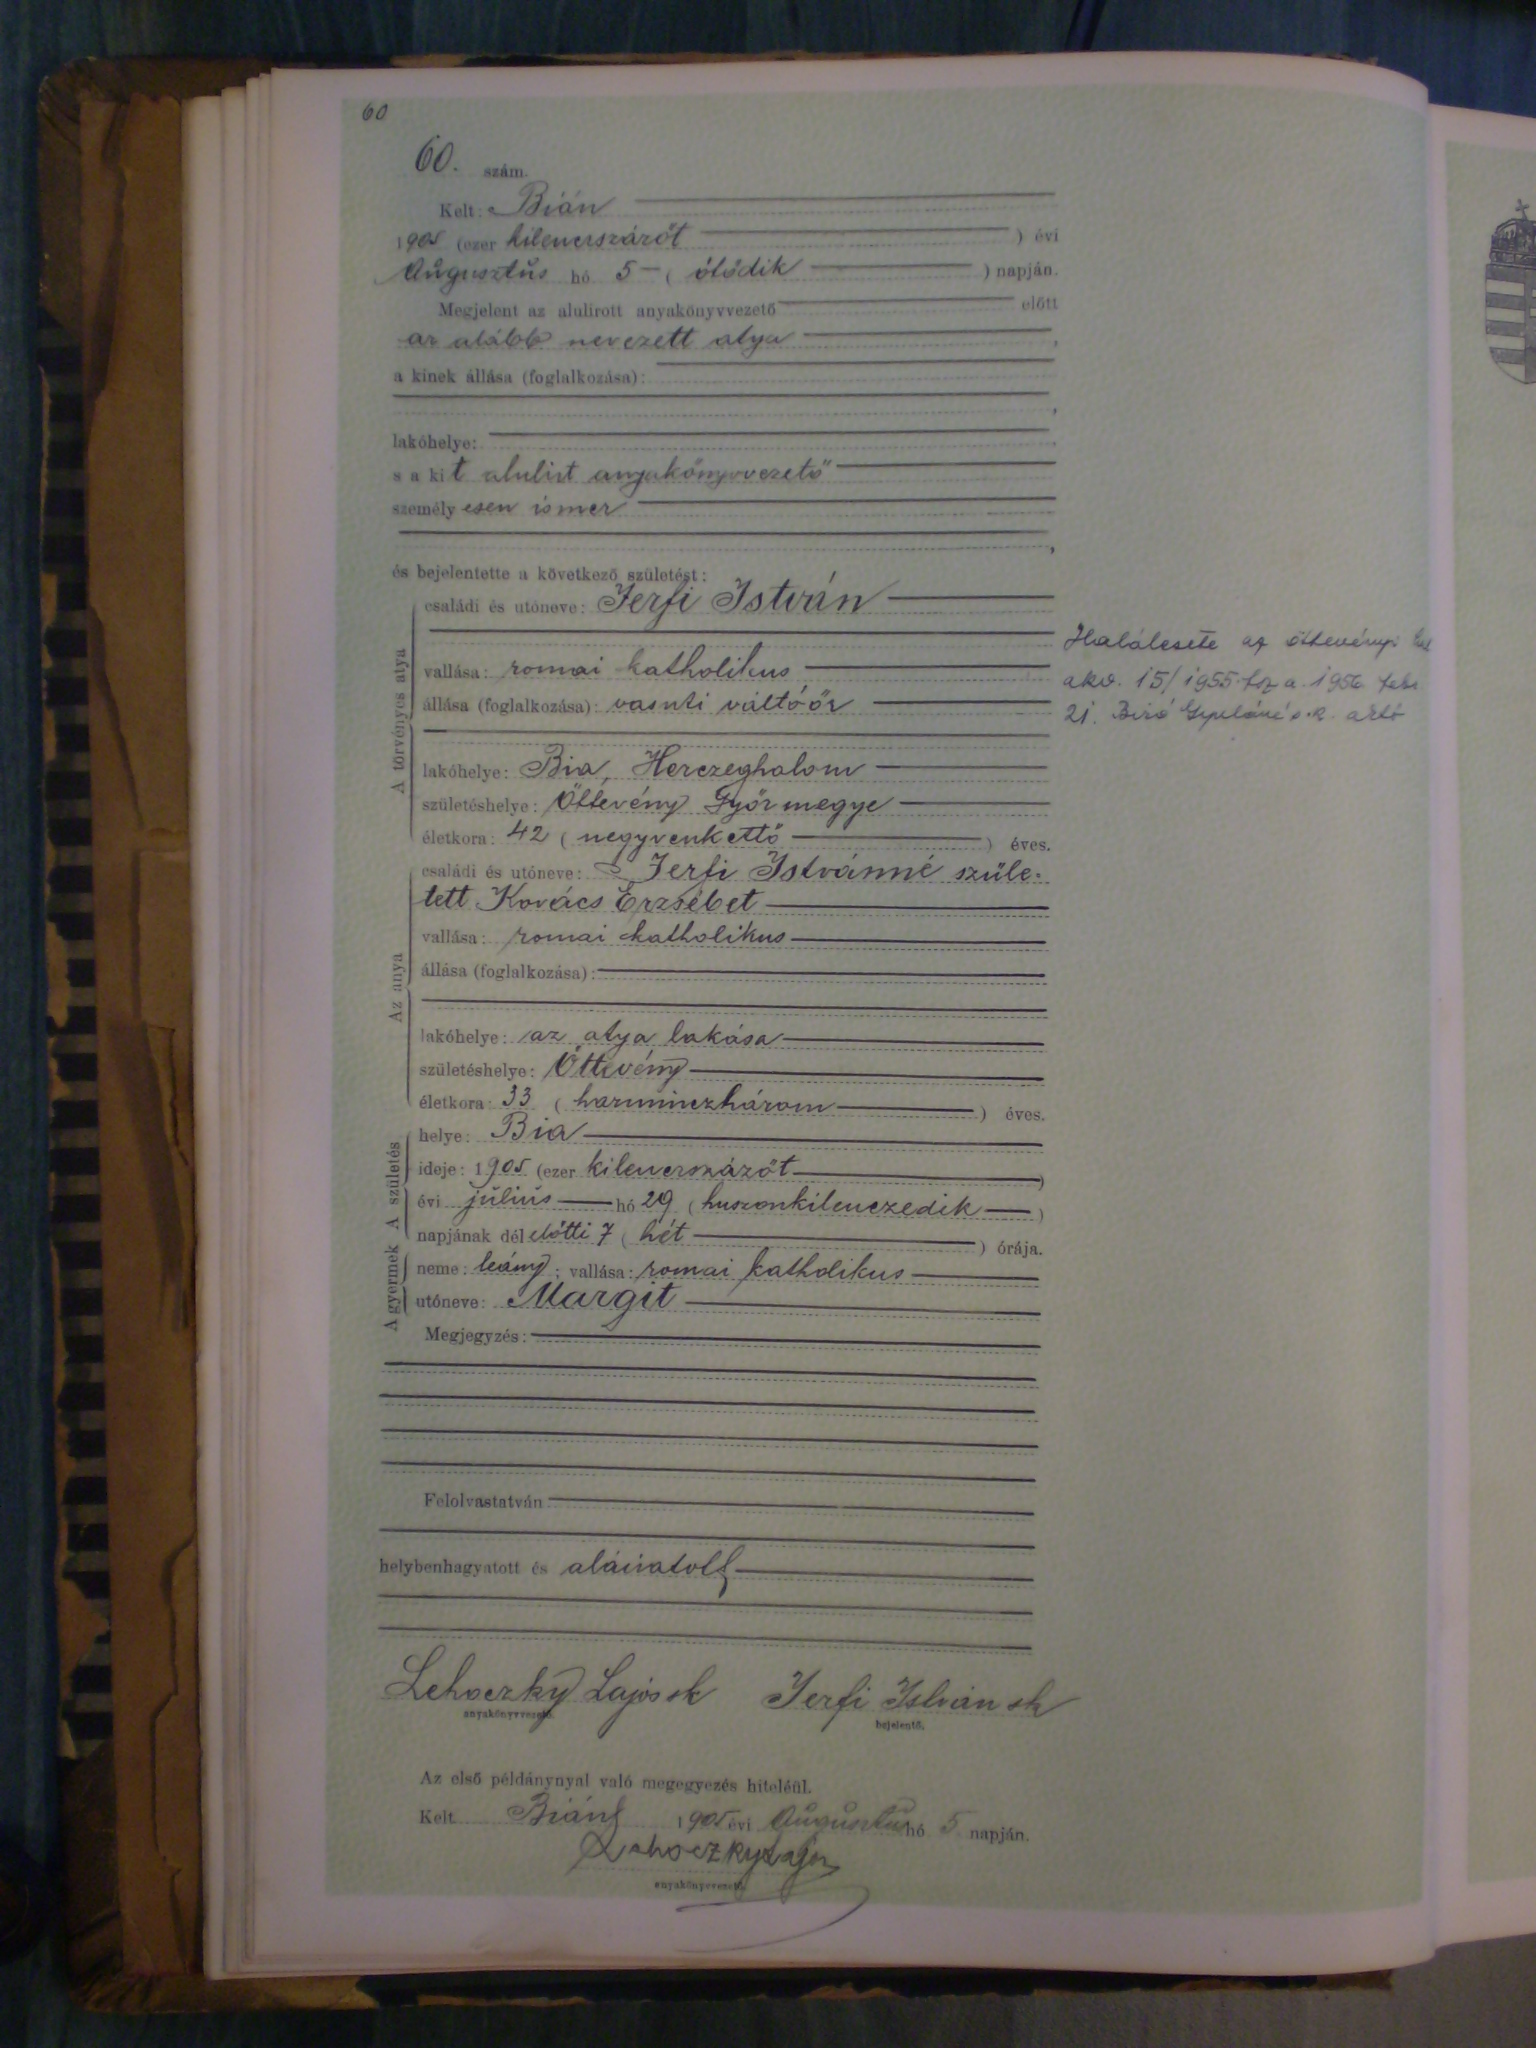 60
60. szám.
Kelt: Bián
1905 (ezer kilenczszázöt ) évi
Augusztus hó 5 ( ötödik ) napján.
Megjelent az alulirott anyakönyvvezető előtt
az alább nevezett atya ,
a kinek állása (foglalkozása):
,
lakóhelye:
s a kit alulirt anyakönyvvezető
személyesen ismer
,
és bejelentette a következő születést:
A törvényes atya
családi és utóneve: Jerfi István
vallása: romai katholikus
állása (foglalkozása): vasuti váltóőr
lakóhelye: Bia, Herczeghalom
születéshelye: Öttevény Győr megye
életkora: 42 ( negyvenkettő ) éves.
Az anya
családi és utóneve: Jerfi Istvánné szüle-
tett Kovács Erzsébet
vallása: romai katholikus
állása (foglalkozása):
lakóhelye: az atya lakása
születéshelye: Öttevény
életkora: 33 ( harminczhárom ) éves.
A születés
helye: Bia
ideje: 1905 (ezer kilenczszázöt )
évi július hó 29 ( huszonkilenczedik )
napjának délelőtti 7 ( hét ) órája.
A gyermek
neme: leány; vallása: romai katholikus
utóneve: Margit
Megjegyzés:
Felolvastatván
helybenhagyatott és aláiratott
Lehoczky Lajos sk Jerfi István sk
anyakönyvvezető. bejelentő.
Az első példánynyal való megegyezés hiteléül.
Kelt Bián 1905 évi Augusztus hó 5 napján.
Lehoczky Lajos
anyakönyvvezető.
Halálesete az öttevényi hal
akv. 15/1955. fsz a. 1956 febr
21. Biró Gyuláné s.k.